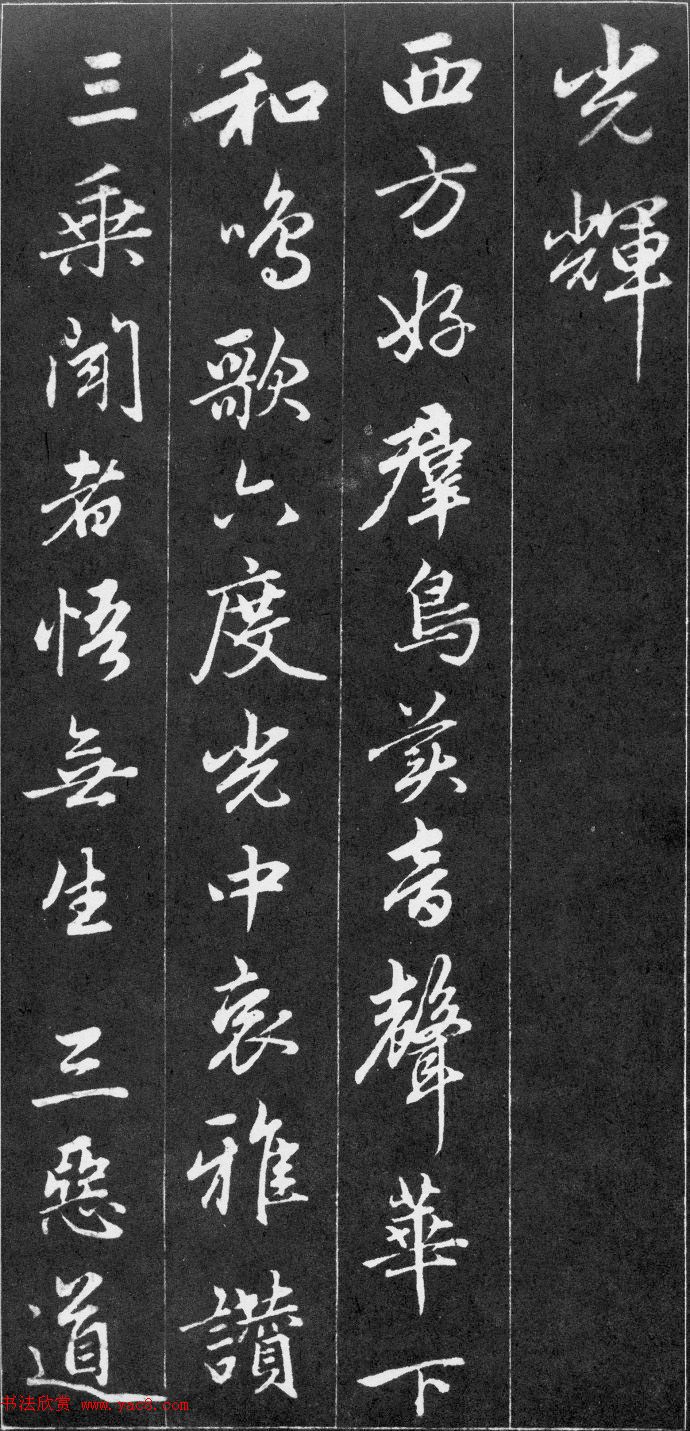 光輝
西方好群鳥美音聲華下
和鳴歌六度光中哀雅讚
三乘聞者悟無生三惡道
书法欣赏 www.yac8.com